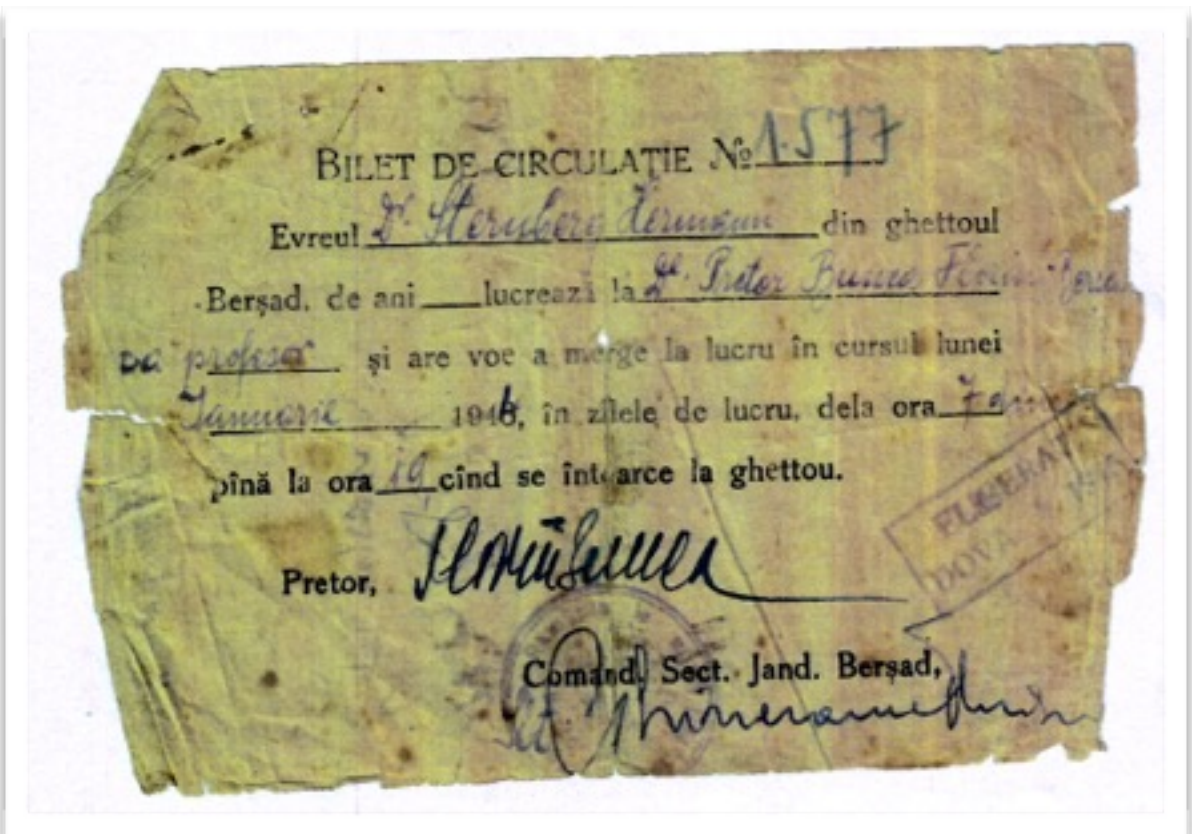 BILET DE CIRCULAȚIE № 1.577
Evreul Dr. Sternberg Herman din ghettoul
Berşad, de ani lucrează la Dl. Pretor Bunea Florin
ca profesor şi are voe a merge la lucru în cursul lunei
Ianuarie 194, în zilele de lucru, dela ora 7
pînă la ora 19 cînd se întoarce la ghettou.
ELIBERAT
DOVA
Pretor, Florin Bunea
Comand. Sect. Jand. Berşad,